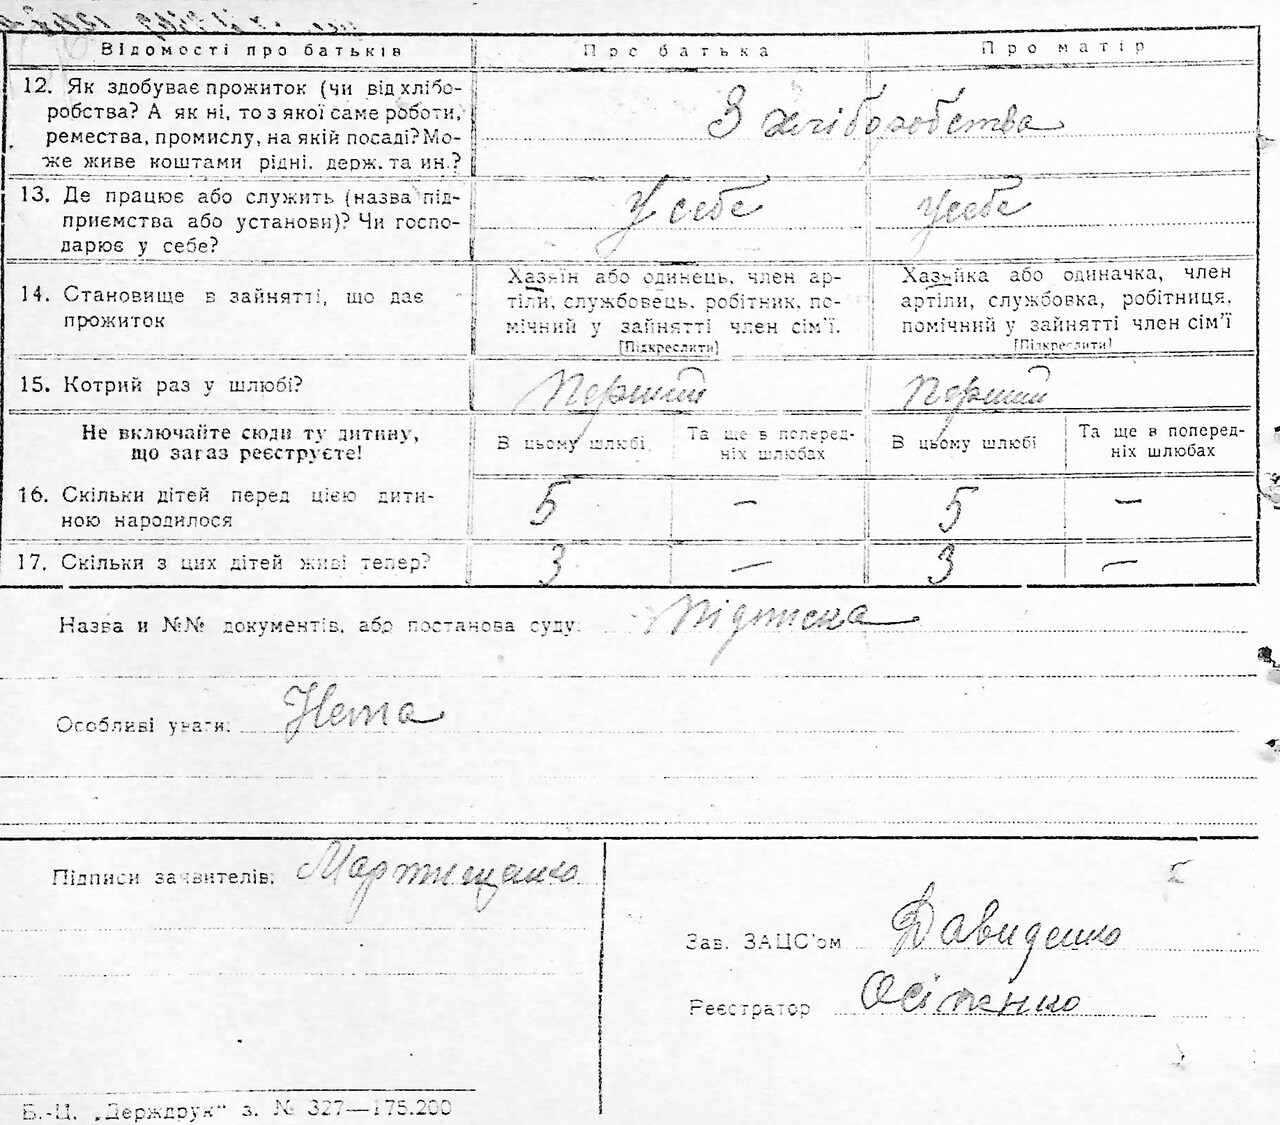 Відомості про батьків Про батька Про матір
12. Як здобуває прожиток (чи від хлібо-
робства? А як ні, то з якої саме роботи,
ремества, промислу, на якій посаді? Мо-
же живе коштами рідні, держ. та ин.?
З хліборобства
13. Де працює або служить (назва під-
приємства або установи)? Чи госпо-
дарює у себе?
У себе У себе
14. Становище в зайнятті, що дає
прожиток
Хазяїн або одинець, член ар-
тіли, службовець, робітник, по-
мічний у зайнятті член сім'ї.
[Підкреслити]
Хазяйка або одиначка, член
артіли, службовка, робітниця,
помічний у зайнятті член сім'ї
[Підкреслити]
15. Котрий раз у шлюбі? Перший Перший
Не включайте сюди ту дитину,
що зараз реєструєте!
В цьому шлюбі
Та ще в поперед-
ніх шлюбах
В цьому шлюбі
Та ще в поперед-
ніх шлюбах
16. Скільки дітей перед цією дити-
ною народилося
5 — 5 —
17. Скільки з цих дітей живі тепер? 3 — 3 —
Назва и №№ документів, або постанова суду: Підписка
Особливі уваги: Нема
Підписи заявителів: Мартищенко
Зав. ЗАЦС'ом Давиденко
Реєстратор Осіпенко
Б.-Ц. „Держдрук" з. № 327—175.200